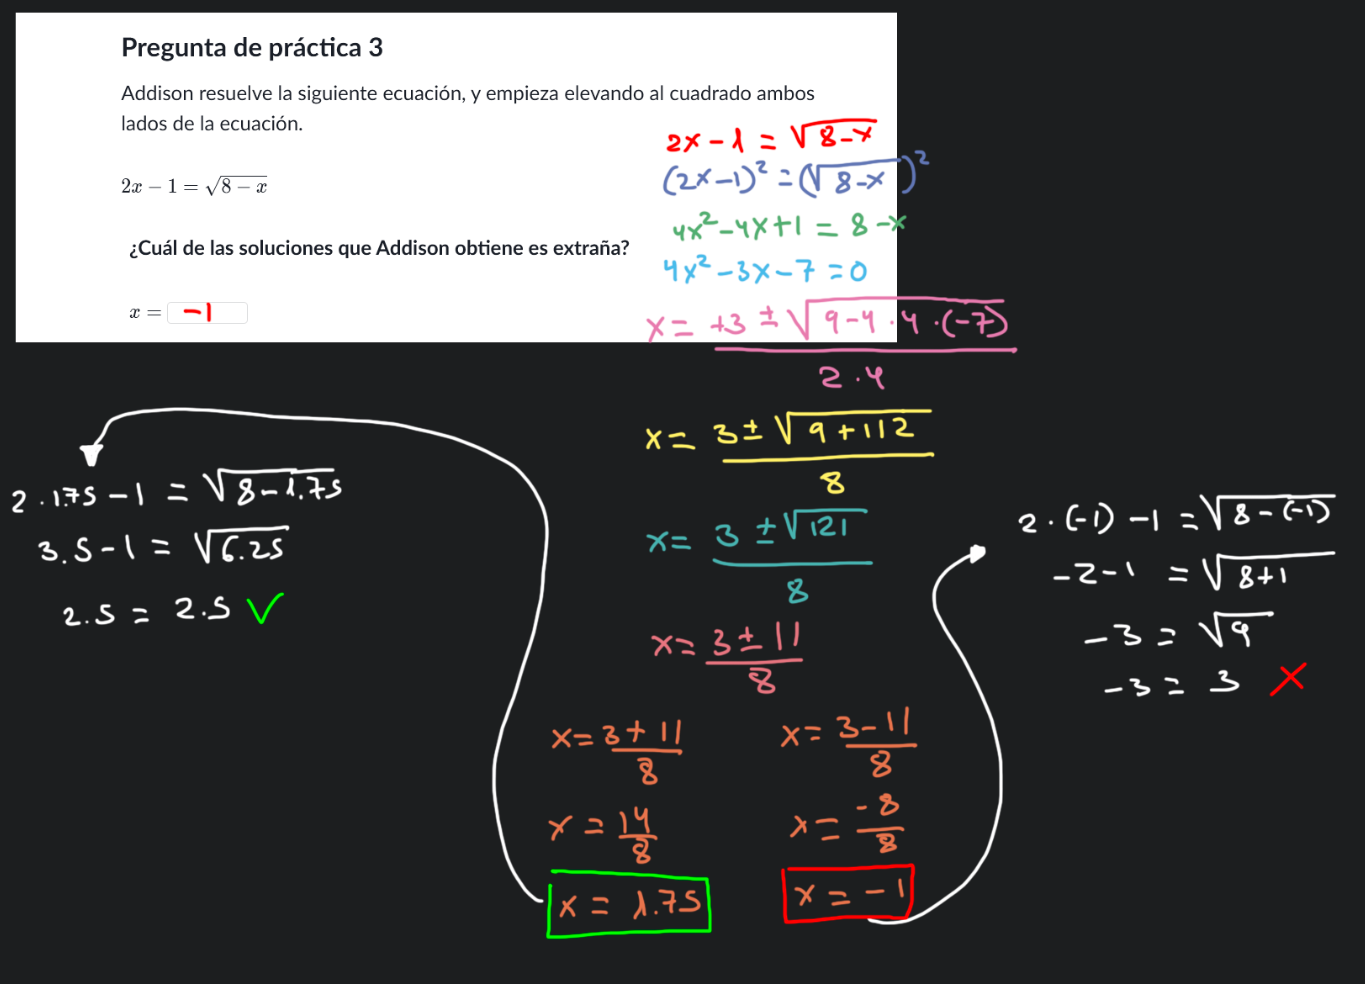 Pregunta de práctica 3
Addison resuelve la siguiente ecuación, y empieza elevando al cuadrado ambos
lados de la ecuación.
2x − 1 = √(8 − x)
¿Cuál de las soluciones que Addison obtiene es extraña?
x = -1
2x - 1 = √(8-x)
(2x-1)² = (√(8-x))²
4x² - 4x + 1 = 8 - x
4x² - 3x - 7 = 0
x = (+3 ± √(9-4·4·(-7))) / (2·4)
x = (3 ± √(9+112)) / 8
x = (3 ± √121) / 8
x = (3 ± 11) / 8
x = (3+11) / 8
x = 14/8
x = 1.75
x = (3-11) / 8
x = -8/8
x = -1
2·1.75 - 1 = √(8-1.75)
3.5 - 1 = √6.25
2.5 = 2.5 ✓
2·(-1) - 1 = √(8-(-1))
-2-1 = √(8+1)
-3 = √9
-3 = 3 ✗